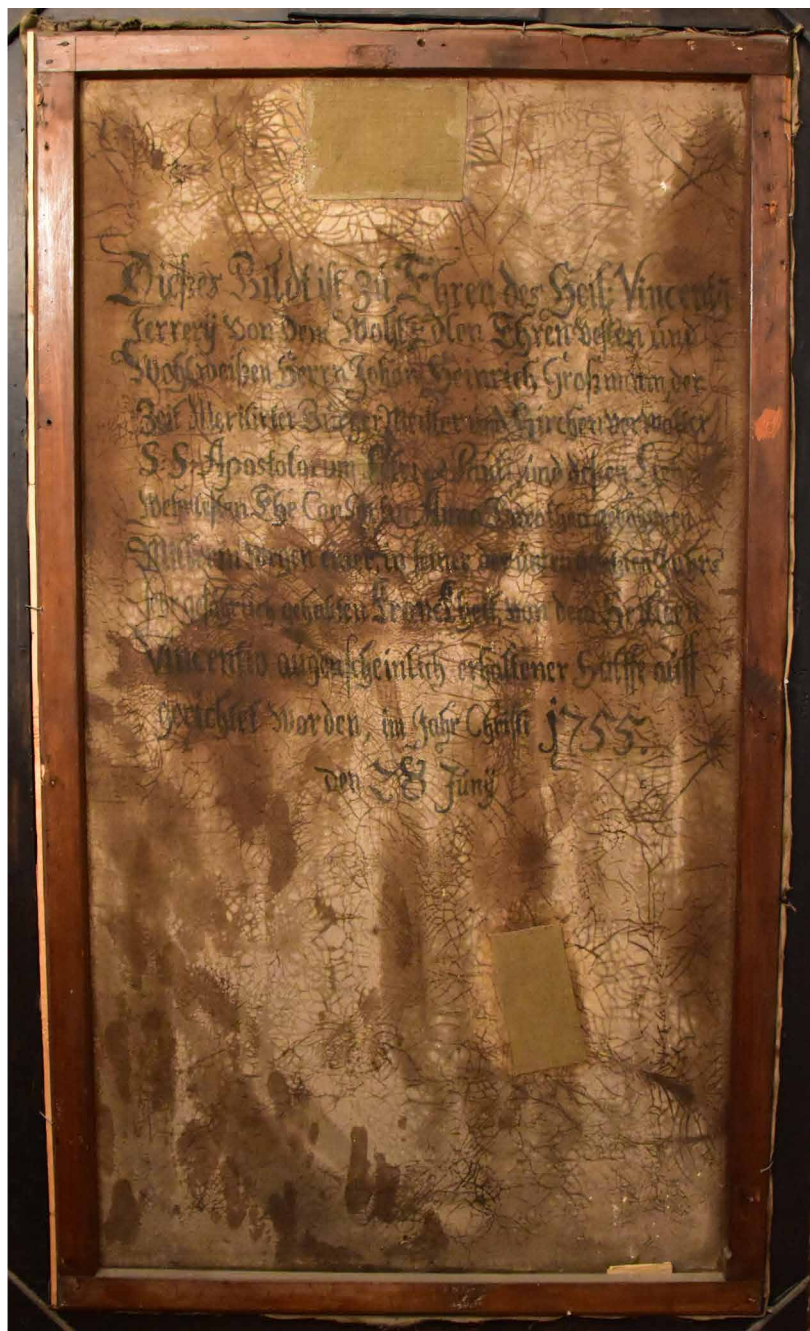 Dießes Bildt ist zu Ehren des Heil: Vincentÿ
Ferrerÿ von dem Wohl Edlen Ehrenvesten und
Wohlweißen Herrn Johan Heinrich Großman, der
Zeit Meritirter Burgermeister und Kirchenverwalter
S: S: Apostolorum Petri et Pauli, und deßen
Ehe Consortin Anna Dorothea gebohrnen
wegen einer, in seiner der unten Jahrs
sehr gefährlich gehabten Kranckheit, von dem Heiligen
Vincentio augenscheinlich erhaltener Hülffe auff
gerichtet worden, im Jahr Christi 1755.
den 28 Junÿ